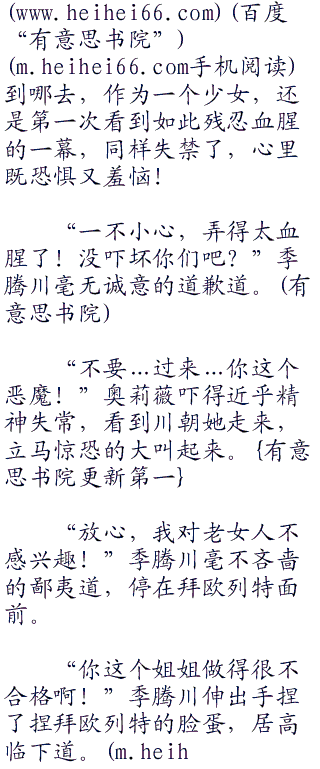 (www.heihei66.com)(百度
“有意思书院”)
(m.heihei66.com手机阅读)
到哪去，作为一个少女，还
是第一次看到如此残忍血腥
的一幕，同样失禁了，心里
既恐惧又羞恼！
“一不小心，弄得太血
腥了！没吓坏你们吧？”季
腾川毫无诚意的道歉道。(有
意思书院)
“不要…过来…你这个
恶魔！”奥莉薇吓得近乎精
神失常，看到川朝她走来，
立马惊恐的大叫起来。{有意
思书院更新第一}
“放心，我对老女人不
感兴趣！”季腾川毫不吝啬
的鄙夷道，停在拜欧列特面
前。
“你这个姐姐做得很不
合格啊！”季腾川伸出手捏
了捏拜欧列特的脸蛋，居高
临下道。(m.heih